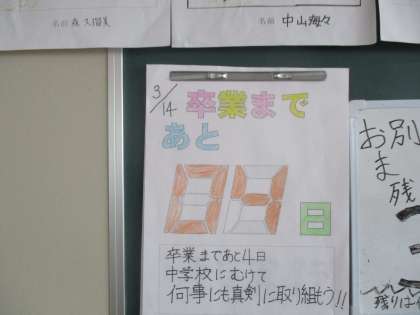 名前 森 久瑠美
名前 中山 海々
3/14
卒業まで
あと
04日
卒業まであと4日
中学校にむけて
何事にも真剣に取り組もう!!
お別
ま
残
残りは